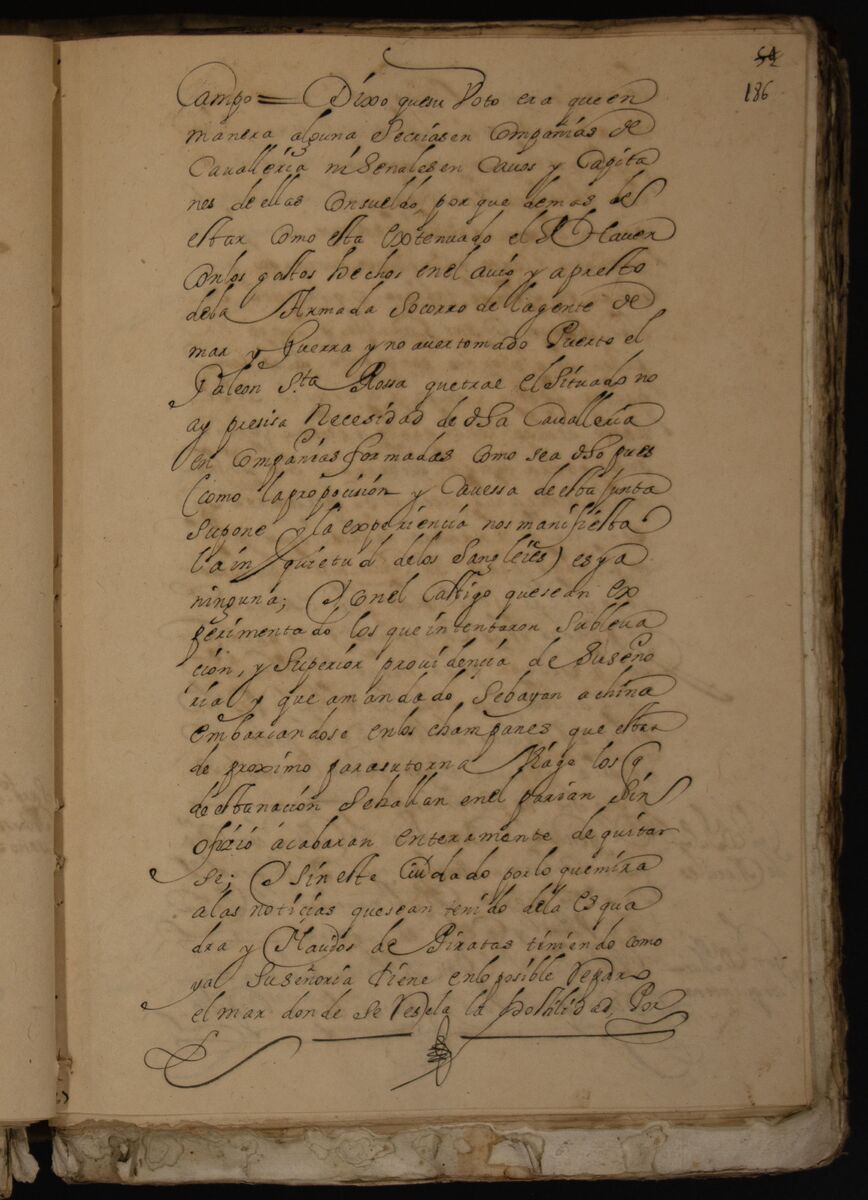 54
186
Campo = Dixo quesu Voto era que en
manera alguna secrias en Compañias de
Cavalleria ni Señales en Cavos y Capita
nes de ellas Consueldo, por que demas del
estar Como esta extenuado el Rl Haver
Conlos gastos hechos enel avio y apresto
dela Armada Socorro de la gente de
mar y Guerra y no aver tomado Puerto el
Galeon Sta Rossa que trae el Situado no
ay presisa Necesidad de esa Cavalleria
en Compañias formadas como sea eso pues
(como la proposision y Cavessa de esta Junta
Supone y la experiencia nos manifiesta
la in quietud delos Sangleies) es ya
ninguna; y Con el Castigo que sean ex
perimentado los que intentaron Subleva
ción, y Superior providencia de Suseño
ria y que a mandado Sebayan a china
embarcandose enlos champanes que estan
de proximo para su torna Viage los q
de esta nación Sehallan en el parian Sin
ofizio acabaran enteramente de quitar
se; y sin este Cuidado por lo que mira
a las noticias que sean tenido dela esqua
dra y Navios de Piratas tiniendo como
ya Suseñoria tiene enlo posible Reparo
el mar donde se Resela la hostilidad, Por